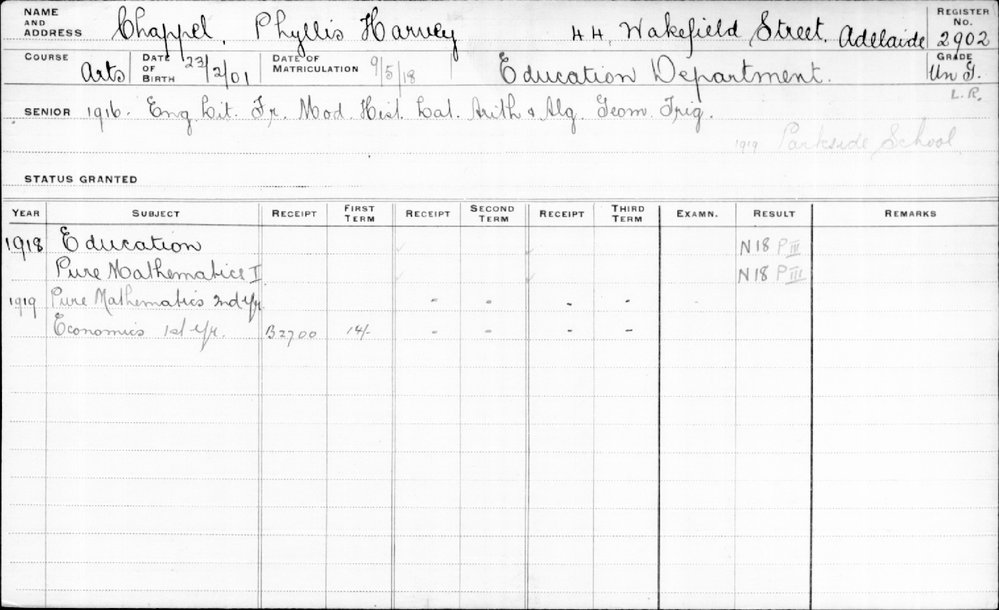 NAME AND ADDRESS Chappel, Phyllis Harvey 44, Wakefield Street, Adelaide REGISTER NO. 2902
COURSE Arts DATE OF BIRTH 23/2/01 DATE OF MATRICULATION 9/5/18 Education Department. GRADE Un G.
L.R.
SENIOR 1916. Eng. Lit. Fr. Mod. Hist. Lat. Arith & Alg. Geom. Trig.
1919 Parkside School
STATUS GRANTED
YEAR SUBJECT RECEIPT FIRST TERM RECEIPT SECOND TERM RECEIPT THIRD TERM EXAMN. RESULT REMARKS
1918 Education N18 P III
Pure Mathematics I N18 P III
1919 Pure Mathematics 2nd Yr. - - - -
Economics 1st Yr. B2700 14/- - - - -